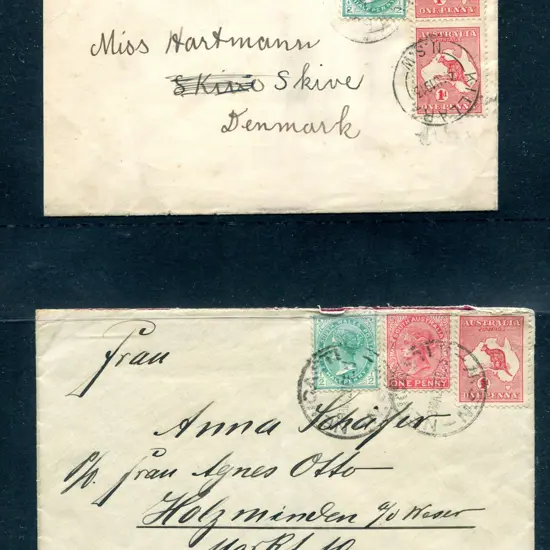 AUSTRALIA
ONE PENNY
ONE PENNY
N.S.W
Miss Hartmann
Skive
Denmark
AUSTRALIA
ONE PENNY
Frau
Anna Schäfer
p/o. Frau Agnes Otto
Holzminden a/d Weser
Markt 10